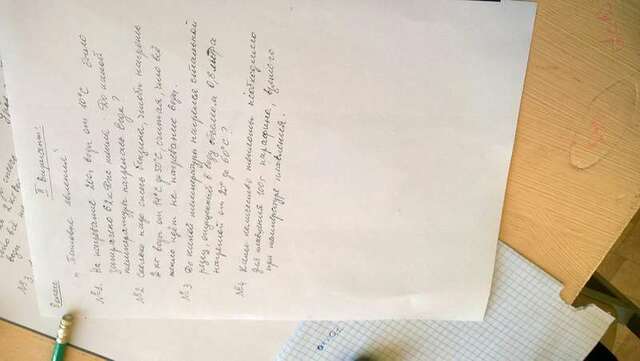 №3.
воды
8 класс
II вариант:
"Тепловые явления"
№1. На нагревание 200г воды от 10°С было
затрачено 62 кДж тепла. До какой
температуры нагрелась вода?
№2 Сколько надо сжечь бензина, чтобы нагреть
2 кг воды от 14°С до 50°С, считая, что всё
тепло идёт на нагревание воды.
№3 До какой температуры нагрелся стальной
резец, опущенный в воду объемом 0,6 литра
нагретой от 25° до 60°С?
№4 Какое количество теплоты необходимо
для плавления 100г парафина, взятого
при температуре плавления.